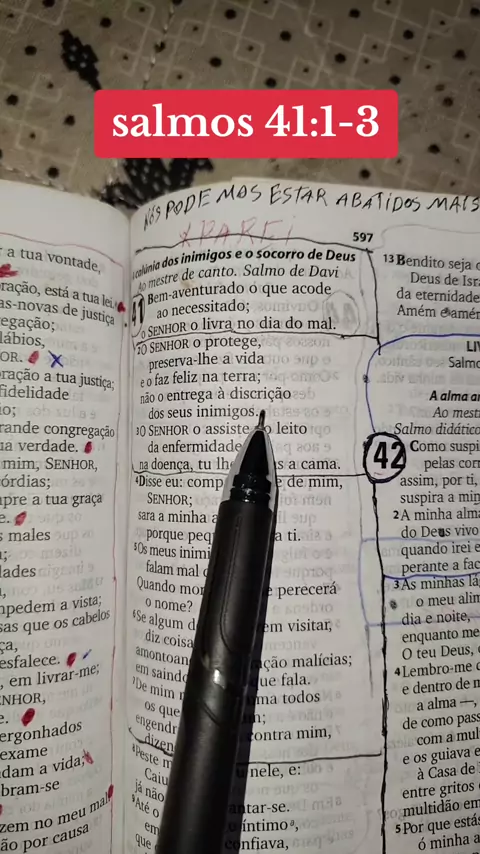 salmos 41:1-3
NÓS PODEMOS ESTAR ABATIDOS MAIS
PAREI
597
r a tua vontade,
ração, está a tua lei.
as-novas de justiça
regação;
lábios,
OR.
oração a tua justiça;
fidelidade
o;
rande congregação
ua verdade.
mim, SENHOR,
órdias;
pre a tua graça
e.
s males
s;
dades
mpedem a vista;
sas que os cabelos
ça,
esfalece.
, em livrar-me;
ENHOR,
e.
ergonhados
exame
dam a vida;
bram-se
zem no meu mal
ão por causa
calúnia dos inimigos e o socorro de Deus
Ao mestre de canto. Salmo de Davi
41
Bem-aventurado o que acode
ao necessitado;
o SENHOR o livra no dia do mal.
2O SENHOR o protege,
preserva-lhe a vida
e o faz feliz na terra;
não o entrega à discrição
dos seus inimigos.
3O SENHOR o assiste no leito
da enfermidade
na doença, tu lhe s a cama.
4Disse eu: comp e de mim,
SENHOR;
sara a minha a
porque peq a ti.
5Os meus inimi
falam mal
Quando mor e perecerá
o nome?
6Se algum d em visitar,
diz coisa
amontoan ração malícias;
em saindo que fala.
7De mim ma todos
os que m;
engendr contra mim,
dizen
8Peste m nele, e:
Caiu
já não antar-se.
9Até o íntimo
em confiava,
que
13Bendito seja o
Deus de Isra
da eternidade
Amém e amém
LIV
Salmo
A alma an
Ao mest
Salmo didático
42
Como suspi
pelas corr
assim, por ti,
suspira a min
2A minha alma
do Deus vivo
quando irei e
perante a fac
3As minhas lá
o meu alim
dia e noite,
enquanto me
O teu Deus,
4Lembro-me d
e dentro de m
a alma —,
de como pass
com a mult
e os guiava e
à Casa de
entre gritos
multidão em
5Por que estás
ó minha a